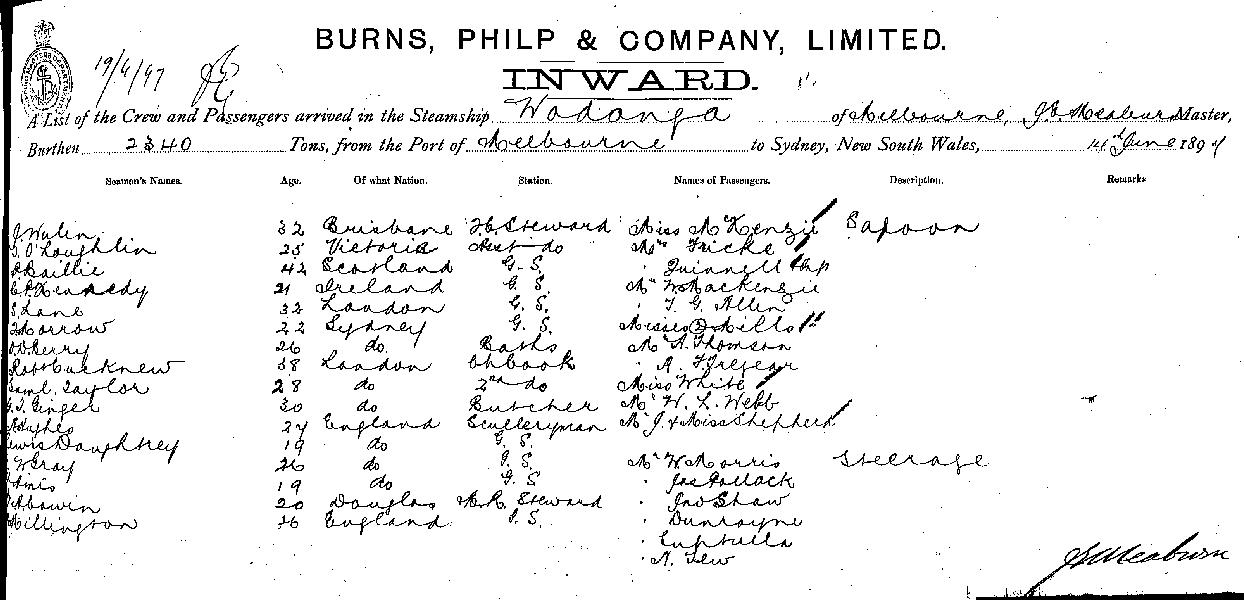 BURNS, PHILP & COMPANY, LIMITED.
19/6/97
INWARD.
A List of the Crew and Passengers arrived in the Steamship Wodonga of Melbourne, J B Meaburn Master,
Burthen 2340 Tons, from the Port of Melbourne to Sydney, New South Wales, 14 June 1897
Seamen's Names. Age. Of what Nation. Station. Names of Passengers. Description. Remarks
32 Brisbane F.C. Steward Miss McKenzie Saloon
O'Loughlin 25 Victoria Asst do Mrs Fricke
Baillie 42 Scotland G. S. " Quinnell
Kennedy 21 Ireland G. S. Mr W Mackenzie
S Lane 32 London G. S. " T. G. Allen
Morrow 22 Sydney G. S. Misses 2 Mills
Berry 26 do Baths Mr A. Thomson
Robt 38 London Ch Cook " A. Tregear
Saml. Taylor 28 do 2nd do Miss White
Ginger 30 do Butcher Mr W. L. Webb
Hughes 27 England Sculleryman Mr J. & Miss Shepherd
Lewis Daughtrey 19 do G. S.
W Gray 26 do G. S. Mr W Morris Steerage
Amis 19 do G. S " Jas Pollack
20 Douglas Steward " Jno Shaw
Millington England G. S. " Dunrayne
" A. Tew
J B Meaburn